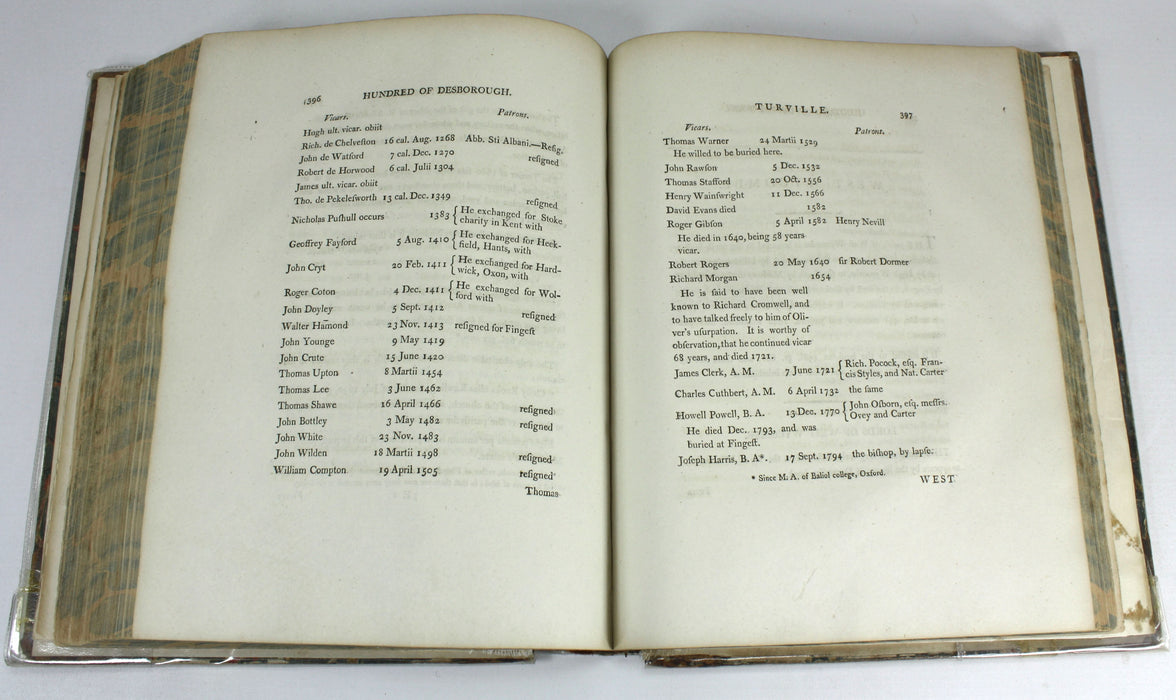 396 HUNDRED OF DESBOROUGH.
Vicars. Patrons.
Hugh ult. vicar. obiit
Rich. de Chelveſton 16 cal. Aug. 1268 Abb. Sti Albani.—Reſig.
John de Watford 7 cal. Dec. 1270 reſigned
Robert de Horwood 6 cal. Julii 1304
James ult. vicar. obiit
Tho. de Pekeleſworth 13 cal. Dec. 1349 reſigned
Nicholas Puſhull occurs 1383 { He exchanged for Stoke
charity in Kent with
Geoffrey Fayford 5 Aug. 1410 { He exchanged for Heek-
field, Hants, with
John Cryt 20 Feb. 1411 { He exchanged for Hard-
wick, Oxon, with
Roger Coton 4 Dec. 1411 { He exchanged for Wol-
ford with
John Doyley 5 Sept. 1412 reſigned
Walter Ham̄ond 23 Nov. 1413 reſigned for Fingeſt
John Younge 9 May 1419
John Crute 15 June 1420
Thomas Upton 8 Martii 1454
Thomas Lee 3 June 1462
Thomas Shawe 16 April 1466 reſigned
John Bottley 3 May 1482 reſigned
John White 23 Nov. 1483
John Wilden 18 Martii 1498 reſigned
William Compton 19 April 1505 reſigned
Thomas
TURVILLE. 397
Vicars. Patrons.
Thomas Warner 24 Martii 1529
He willed to be buried here.
John Rawſon 5 Dec. 1532
Thomas Stafford 20 Oct. 1556
Henry Wainſwright 11 Dec. 1566
David Evans died 1582
Roger Gibſon 5 April 1582 Henry Nevill
He died in 1640, being 58 years
vicar.
Robert Rogers 20 May 1640 ſir Robert Dormer
Richard Morgan 1654
He is ſaid to have been well
known to Richard Cromwell, and
to have talked freely to him of Oli-
ver's uſurpation. It is worthy of
obſervation, that he continued vicar
68 years, and died 1721.
James Clerk, A. M. 7 June 1721 { Rich. Pocock, eſq. Fran-
cis Styles, and Nat. Carter
Charles Cuthbert, A. M. 6 April 1732 the ſame
Howell Powell, B. A. 13 Dec. 1770 { John Oſborn, eſq. meſſrs.
Ovey and Carter
He died Dec. 1793, and was
buried at Fingeſt.
Joſeph Harris, B. A*. 17 Sept. 1794 the biſhop, by lapſe.
* Since M. A. of Baliol college, Oxford.
WEST